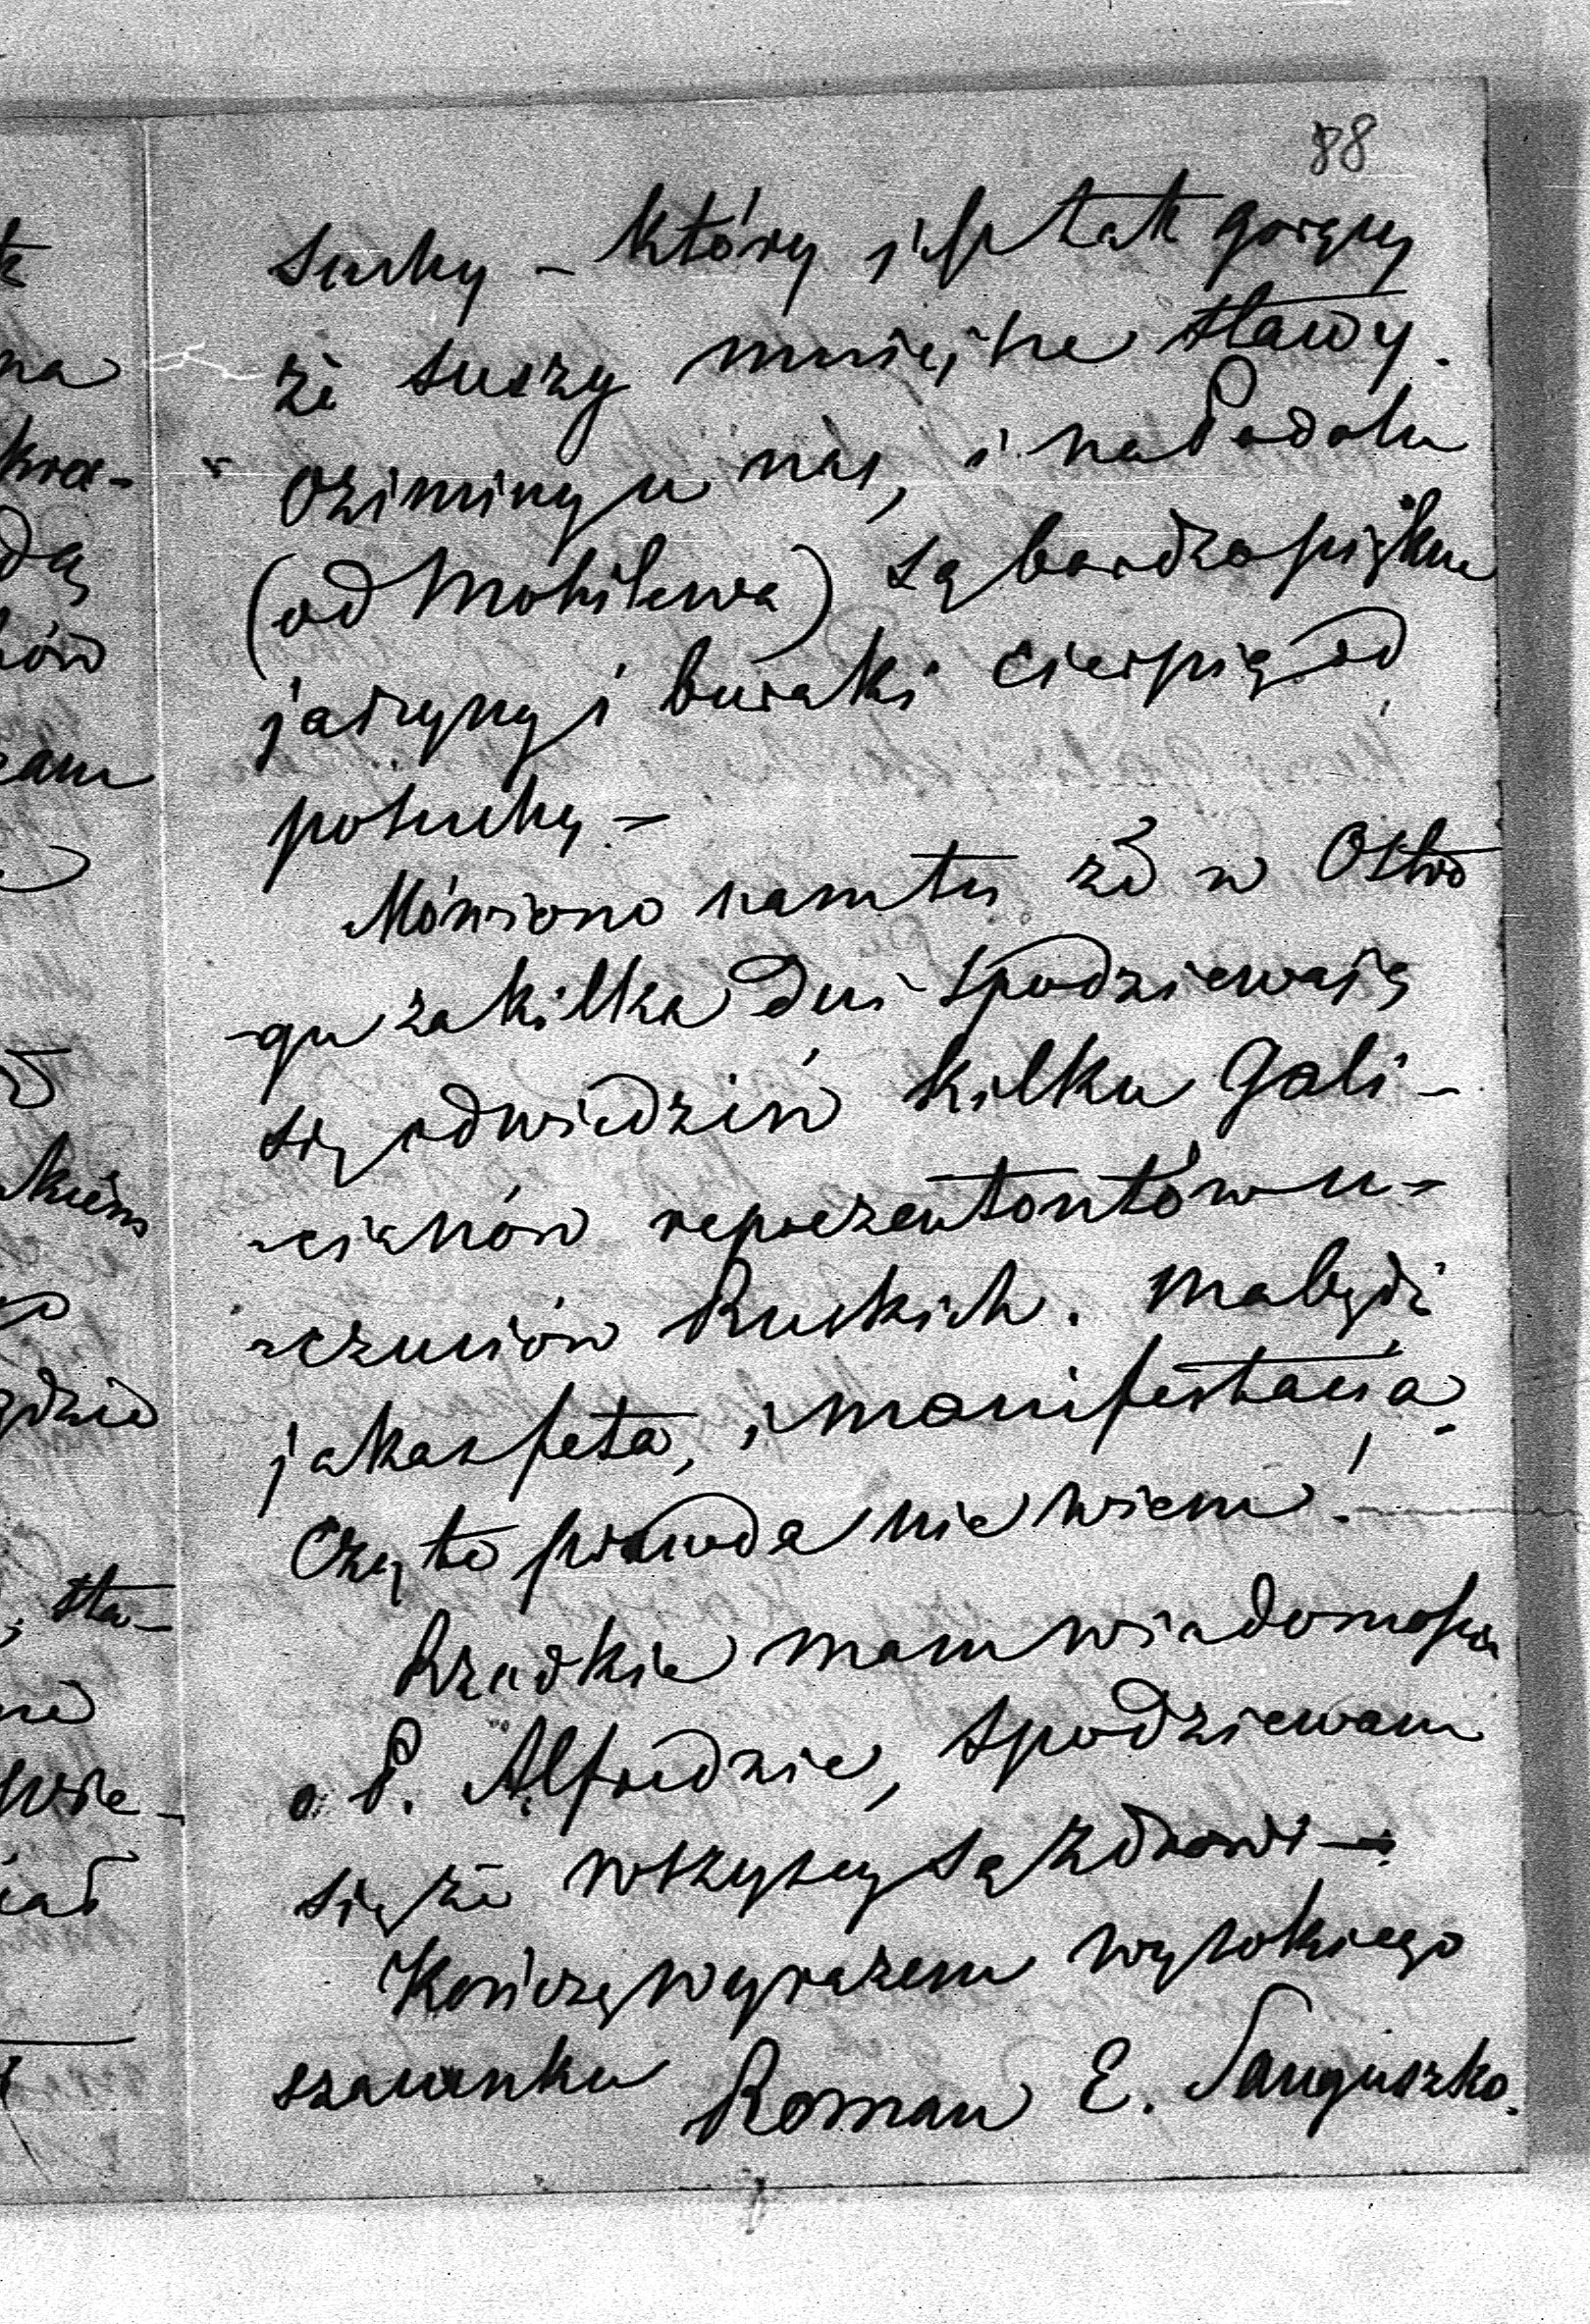 88
suchy – który jest tak gorący
że suszy mniejsze stawy.
Oziminy u nas, i na Podolu
(od Mohilewa) są bardzo piękne
jarzyny i buraki cierpią od
posuchy –
Mówiono nam tu że w Ostro
-gu za kilka dni spodziewają
się odwiedzin kilku Gali-
-cianów reprezentontów u-
-czuciów Ruskich. Ma być
jakas feta, i manifestacia.
Czy to prawda nie wiem!
Rzadkie mam wiadomości
o P. Alfredzie, spodziewam
się że wszyscy są zdrowi –
Kończę wyrazem wysokiego
szacunku Roman E. Sanguszko.